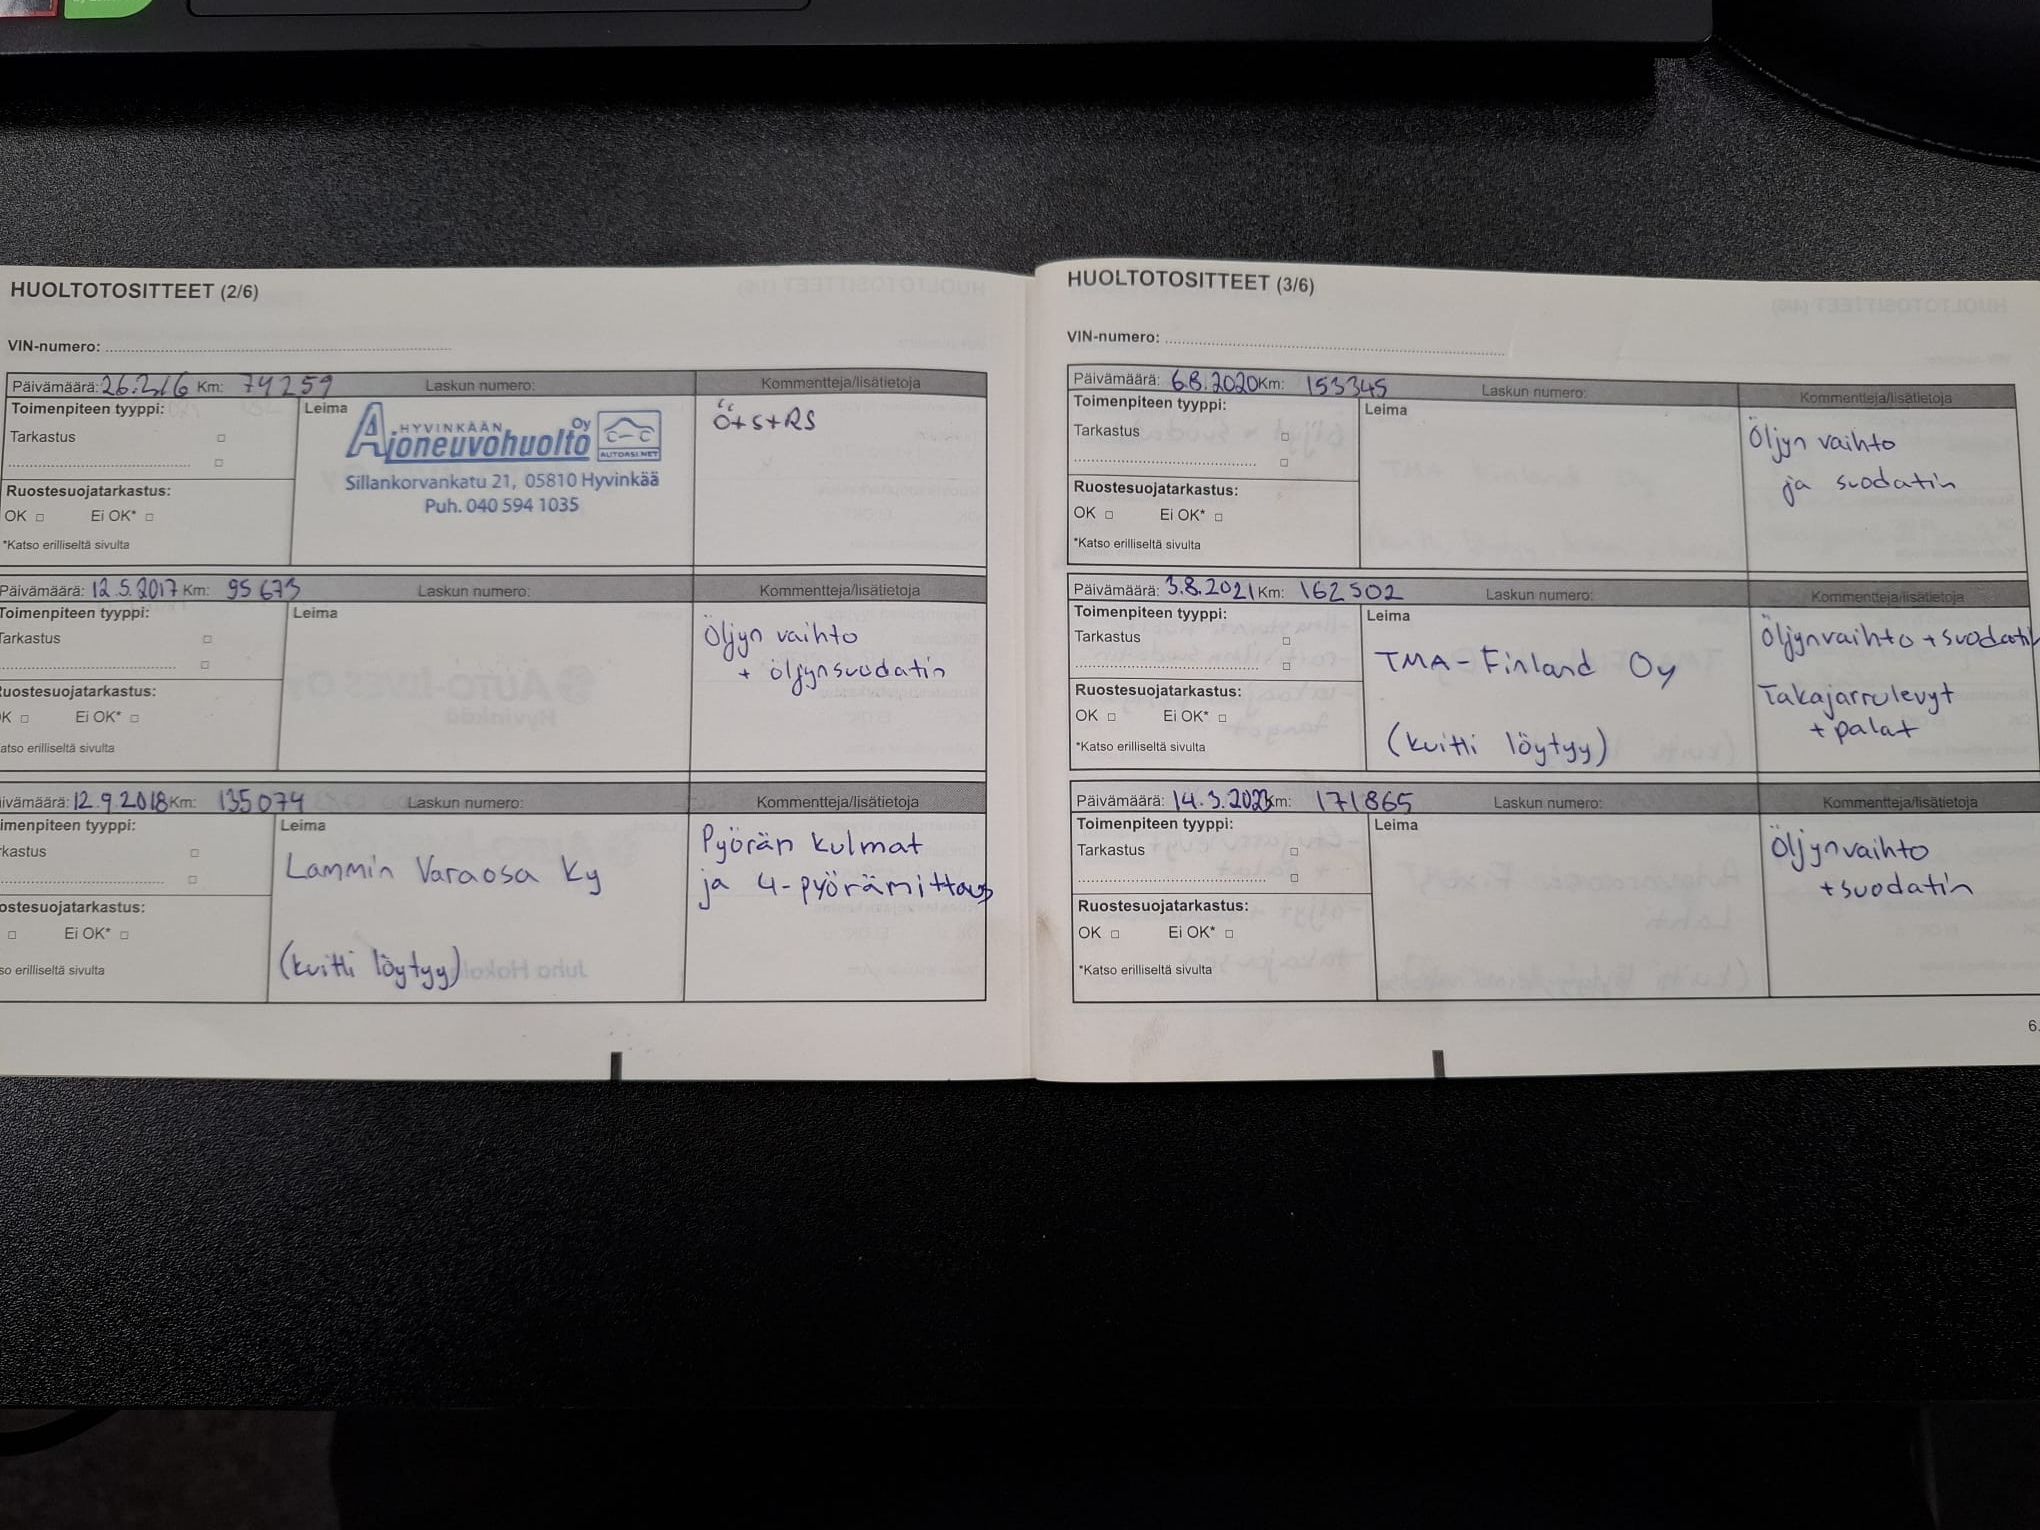 HUOLTOTOSITTEET (2/6)
VIN-numero:
Päivämäärä: 26.2.16 Km: 74259 Laskun numero: Kommentteja/lisätietoja
Toimenpiteen tyyppi: Leima
Tarkastus
HYVINKÄÄN
Ajoneuvohuolto Oy
AUTOASI.NET
Sillankorvankatu 21, 05810 Hyvinkää
Puh. 040 594 1035
Ö+S+RS
Ruostesuojatarkastus:
OK Ei OK*
*Katso erilliseltä sivulta
Päivämäärä: 12.5.2017 Km: 95673 Laskun numero: Kommentteja/lisätietoja
Toimenpiteen tyyppi: Leima
Tarkastus
Öljyn vaihto
+ öljynsuodatin
Ruostesuojatarkastus:
K Ei OK*
atso erilliseltä sivulta
ivämäärä: 12.9.2018 Km: 135074 Laskun numero: Kommentteja/lisätietoja
imenpiteen tyyppi: Leima
kastus
Lammin Varaosa Ky
(kuitti löytyy)
Pyörän kulmat
ja 4-pyörämittaus
ostesuojatarkastus:
Ei OK*
so erilliseltä sivulta
HUOLTOTOSITTEET (3/6)
VIN-numero:
Päivämäärä: 6.8.2020 Km: 153345 Laskun numero: Kommentteja/lisätietoja
Toimenpiteen tyyppi: Leima
Tarkastus
Öljyn vaihto
ja suodatin
Ruostesuojatarkastus:
OK Ei OK*
*Katso erilliseltä sivulta
Päivämäärä: 3.8.2021 Km: 162502 Laskun numero: Kommentteja/lisätietoja
Toimenpiteen tyyppi: Leima
Tarkastus
TMA-Finland Oy
(kuitti löytyy)
Öljynvaihto + suodatin
Takajarrulevyt
+ palat
Ruostesuojatarkastus:
OK Ei OK*
*Katso erilliseltä sivulta
Päivämäärä: 14.3.2023 Km: 171865 Laskun numero: Kommentteja/lisätietoja
Toimenpiteen tyyppi: Leima
Tarkastus
Öljynvaihto
+suodatin
Ruostesuojatarkastus:
OK Ei OK*
*Katso erilliseltä sivulta
6.